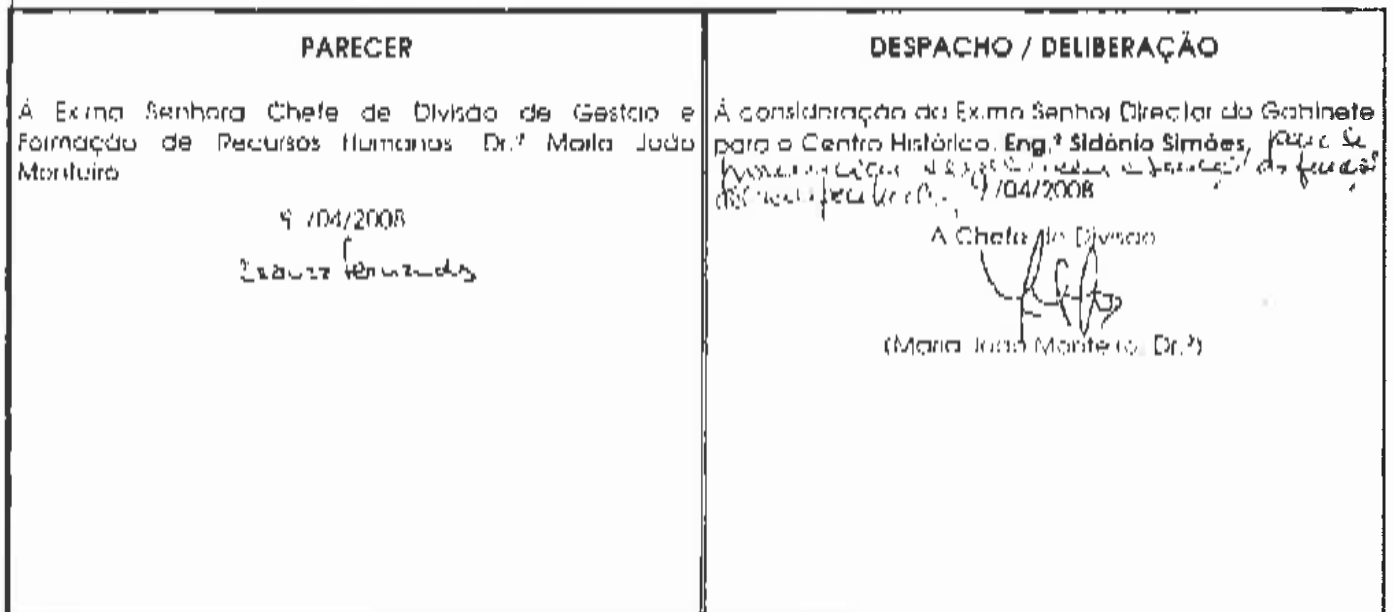 PARECER
À Exma Senhora Chefe de Divisão de Gestão e
Formação de Recursos Humanos Dr.ª Maria João
Monteiro
9 /04/2008
DESPACHO / DELIBERAÇÃO
À consideração do Ex.mo Senhor Director do Gabinete
para o Centro Histórico, Eng.º Sidónio Simões, para se
9/04/2008
A Chefe de Divisão
(Maria João Monteiro, Dr.ª)